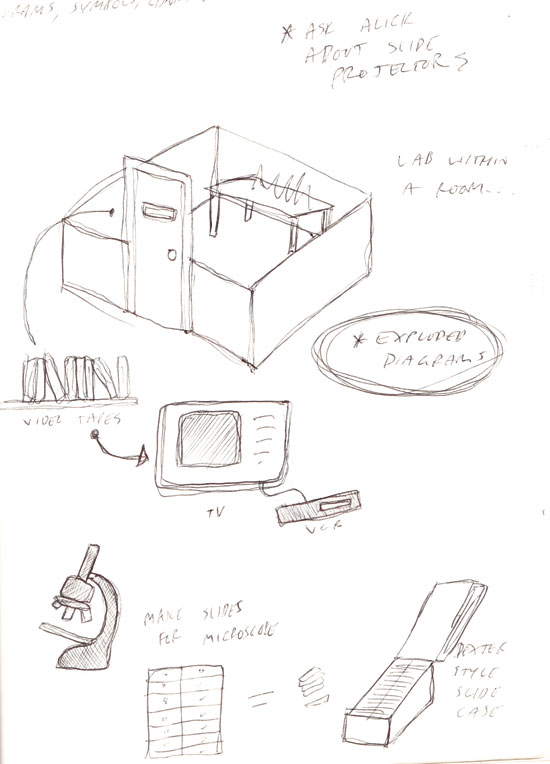 SYMBOLS,
* ASK ALICK
ABOUT SLIDE
PROJECTORS
LAB WITHIN
A ROOM...
* EXPLODED
DIAGRAMS
VIDEO TAPES
TV
VCR
MAKE SLIDES
FOR MICROSCOPE
DEXTER
STYLE
SLIDE
CASE